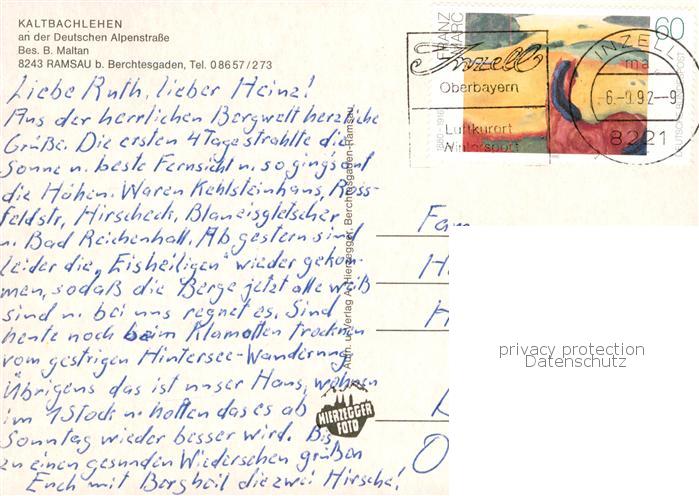 KALTBACHLEHEN
an der Deutschen Alpenstraße
Bes. B. Maltan
8243 RAMSAU b. Berchtesgaden, Tel. 08657/273
FRANZ MARC
60
1880-1916
DEUTSCHE BUNDESPOST
Inzell
Oberbayern
Luftkurort
Wintersport
INZELL
ma
6.-9.92-9
8221
Liebe Ruth, lieber Heinz!
Aus der herrlichen Bergwelt herzliche
Grüße. Die ersten 4 Tage strahlte die
Sonne u. beste Fernsicht u. so ging's auf
die Höhen. Waren Kehlsteinhaus, Ross-
feldstr, Hirscheck, Blaueisgletscher
u. Bad Reichenhall. Ab gestern sind
leider die „Eisheiligen" wieder gekom-
men, sodaß die Berge jetzt alle weiß
sind u. bei uns regnet es. Sind
heute noch beim Klamotten trocknen
vom gestrigen Hintersee-Wanderung
Übrigens das ist unser Haus, wohnen
im 1 Stock u. hoffen das es ab
Sonntag wieder besser wird. Bis
zu einen gesunden Wiedersehen grüßen
Euch mit Bergheil die zwei Hirsche!
Aufn. u. Verlag A. Hierzegger, Berchtesgaden-Ramsau
HIERZEGGER
FOTO
Fam
H
H
O
privacy protection
Datenschutz